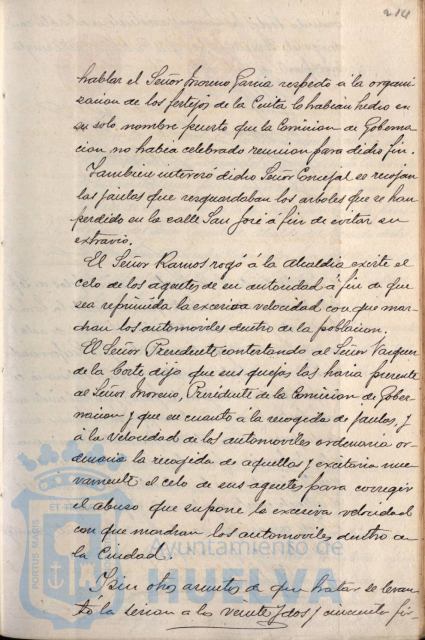 214
hablar el Señor Moreno Garcia respecto á la organi
zacion de los festejos de la Cinta lo habian hecho en
su solo nombre puesto que la Comision de Goberna
cion no habia celebrado reunion para dicho fin.
Tambien interesó dicho Señor Concejal se recojan
las jaulas que resguardaban los arboles que se han
perdido en la calle San José á fin de evitar su
extravio.
El Señor Ramos rogó á la alcaldia excite el
celo de los agentes de su autoridad á fin de que
sea reprimida la excesiva velocidad con que mar
chan los automoviles dentro de la poblacion.
El Señor Presidente contestando al Señor Vazquez
de la Corte dijo que sus quejas las haria presente
al Señor Moreno, Presidente de la Comision de Gober
nacion y que en cuanto á la recogida de jaulas, y
á la velocidad de los automoviles ordenaria or
denaria la recogida de aquellas y excitaria nue
vamente el celo de sus agentes para corregir
el abuso que supone la excesiva velocidad
con que marchan los automoviles dentro de
la Ciudad.
Y sin otros asuntos de que tratar se levan
tó la sesion a las veinte y dos y cincuenta fir-
PORTUS MARIS
ET TE
Ayuntamiento de
HUELVA